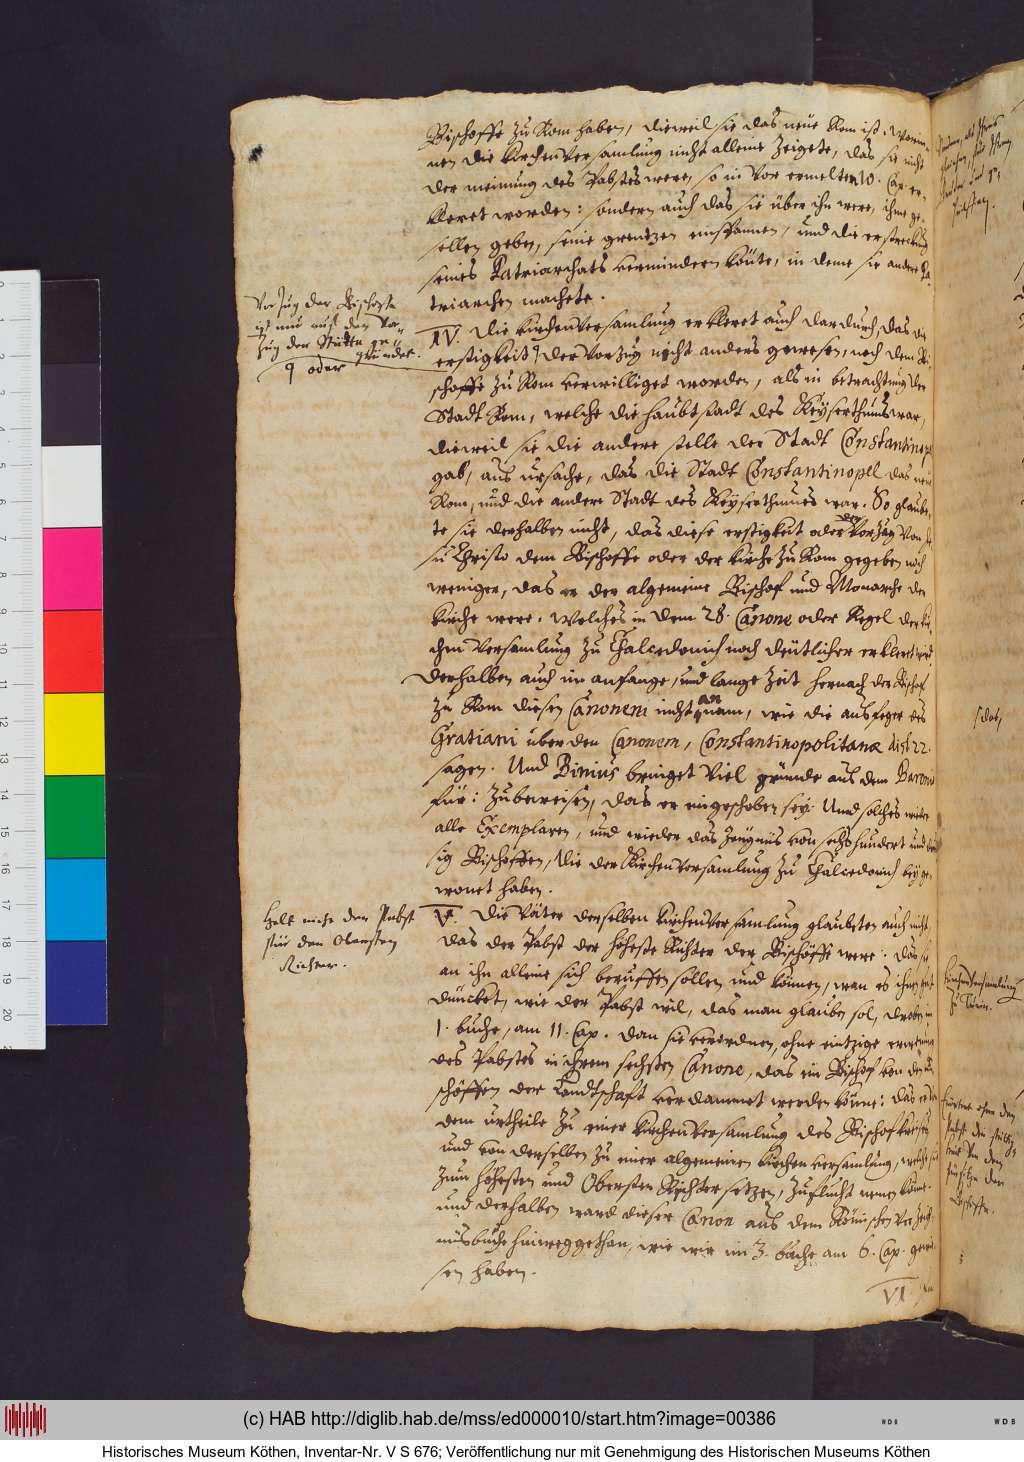 Bischoffe zu Rom haben, dieweil sie das neue Rom ist. Worin-
nen die Kirchenversamlung nicht alleine zeigete, das sie nicht
der meinung des Pabstes were so in vor ermelten 10. Cap. er-
kleret worden: sondern auch das sie über ihn were, ihme ge-
sellen geben, seine grentzen einspannen, und die erstreckung
seines Patriarchats vermindern könte, in deme sie andere Pa-
triarchen machete.
IV. Die Kirchenversamlung erkleret auch dardurch, das die
erstigkeit oder Vorzug nicht anders gewesen, noch dem Bi-
schoffe zu Rom verwilliget worden, als in betrachtung der
Stadt Rom, welche die haubtstadt des Keyserthums war,
dieweil sie die andere stelle der Stadt Constantinopel
gab, aus ursache, das die Stadt Constantinopel das neue
Rom, und die andere Stadt des Keyserthumes war. So glaub-
te sie derhalben nicht, das diese erstigkeit oder der Vorzug von Je-
su Christo dem Bischoffe oder der Kirche zu Rom gegeben noch
weniger, das er der algemeine Bischof und Monarche der
Kirche were. Welches in dem 28. Canone oder Regel der Kir-
chen Versamlung zu Chalcedonich noch deutlicher erkleret wird
derhalben auch im anfange, und lange Zeit hernach der Bischof
zu Rom diesen Canonem nicht an nam, wie die ausleger des
Gratiani über den Canonem, Constantinopolitanæ dist 22.
sagen. Und Binius bringet viel gründe aus dem Baronio
für: zubeweisen, das er eingeschoben sey. Und solches wider
alle Exemplaren, und wieder das Zeugnüs von sechshundert und
sig Bischoffen, die der Kirchenversamlung zu Chalcedonich beyge-
wonet haben.
V. Die Väter derselben Kirchenversamlung glaubten auch nicht,
das der Pabst der höheste Richter der Bischöffe were. das sie
an ihn alleine sich beruffen sollen und können, wan es ihnen gut
düncket, wie der Pabst wil, das man glauben sol, droben im
1. buche, am 11. Cap. dan sie verordnen, ohne eintzige erwenung
des Pabstes in ihrem sechsten Canone, das ein Bischof von den Bi-
schöffen der Landtschaft verdammet werden könne: das er von
dem urtheile zu einer Kirchenversamlung des Bischofkreises
und von derselben zu einer algemeinen Kirchenversamlung, welche sie
zum höhesten und Obersten Richter setzen, zuflucht nemen könne.
und derhalben ward dieser Canon aus dem Römischen Verzeich-
nüsbuche hinweggethan, wie wir im 3. buche am 6. Cap. gewie-
sen haben.
VI.
Vorzug der Bischoffe
ist nur auf den Vor-
zug der Städte ge-
gründet.
q oder
Helt nicht den Pabst
für den Obersten
Richter.
(c) HAB http://diglib.hab.de/mss/ed000010/start.htm?image=00386
WDB
WDB
Historisches Museum Köthen, Inventar-Nr. V S 676; Veröffentlichung nur mit Genehmigung des Historischen Museums Köthen